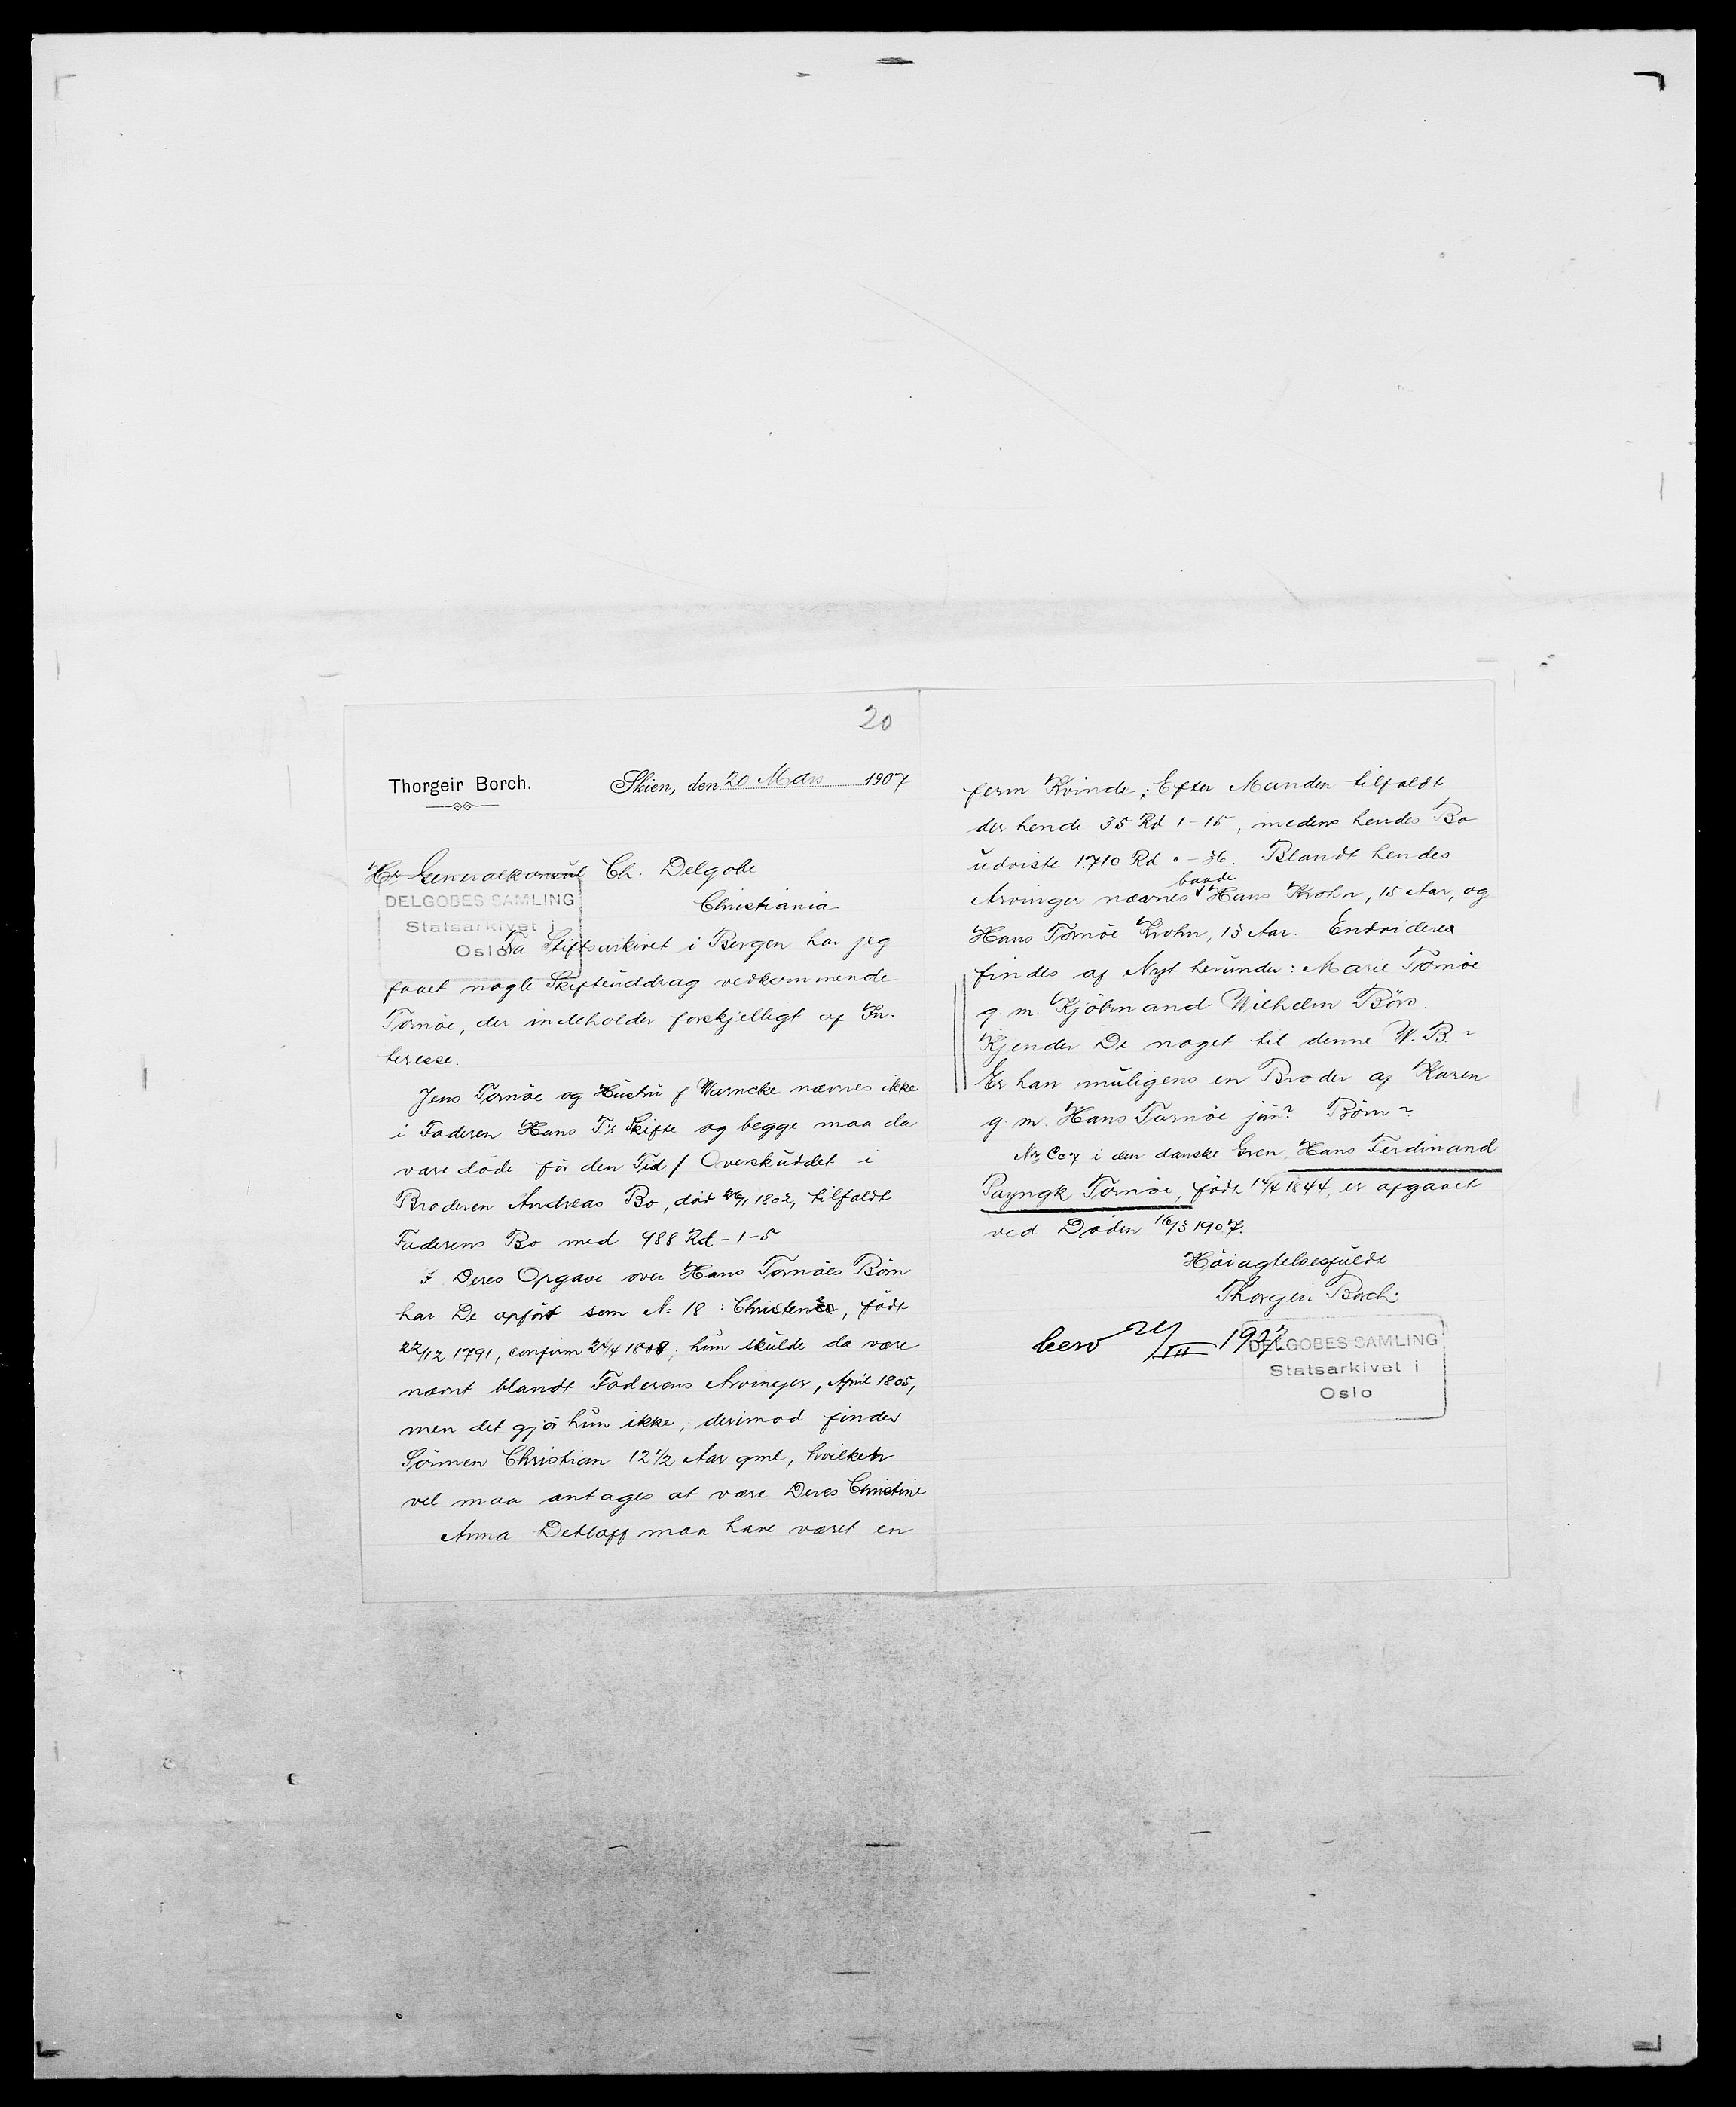 20
Thorgeir Borch.
Skien, den 20 Mars 1907
Hr Generalkonsul Ch. Delgobe
Christiania
DELGOBES SAMLING
Statsarkivet i
Oslo
Fra Stiftsarkivet i Bergen har jeg
faaet nogle Skifteuddrag vedkommende
Tornöe, der indeholder forskjelligt af In-
teresse.
Jens Tornöe og Hustru f Warncke nævnes ikke
i Faderen Hans T's Skifte og begge maa da
være döde för den Tid. / Overskuddet i
Broderen Andreas Bo, död 1802, tilfaldt
Faderens Bo med 988 Rd - 1 - 5
I Deres Opgave over Hans Tornöes Börn
har De opfört som No 18 : Christence, födt
22/12 1791, confirm 24/4 1808; hun skulde da være
nævnt blandt Faderens Arvinger, April 1805,
men det gjör hun ikke, derimod findes
Sönnen Christian 12 1/2 Aar gml, hvilken
vel maa antages at være Deres Christine
Anna Detloff maa have været en
ferm Kvinde; Efter Manden tilfaldt
der hende 35 Rd 1 - 15, medens hendes Bo
udviste 1710 Rd Blandt hendes
Arvinger nævnes baade Hans Krohn, 15 Aar, og
Hans Tornöe Krohn, 13 Aar. Endvidere
findes af Nyt herunder: Marie Tornöe
g. m. Kjöbmand Wilhelm Börs.
Kjender De noget til denne W. B.?
Er han muligens en Broder af Karen
g. m. Hans Tornöe jun? Börn?
No i den danske Gren, Hans Ferdinand
Payngk Tornöe, födt 14/4 1844, er afgaaet
ved Döden 16/3 1907.
Höiagtelsesfuldt
Thorgeir Borch.
besv 21/III 1907
DELGOBES SAMLING
Statsarkivet i
Oslo